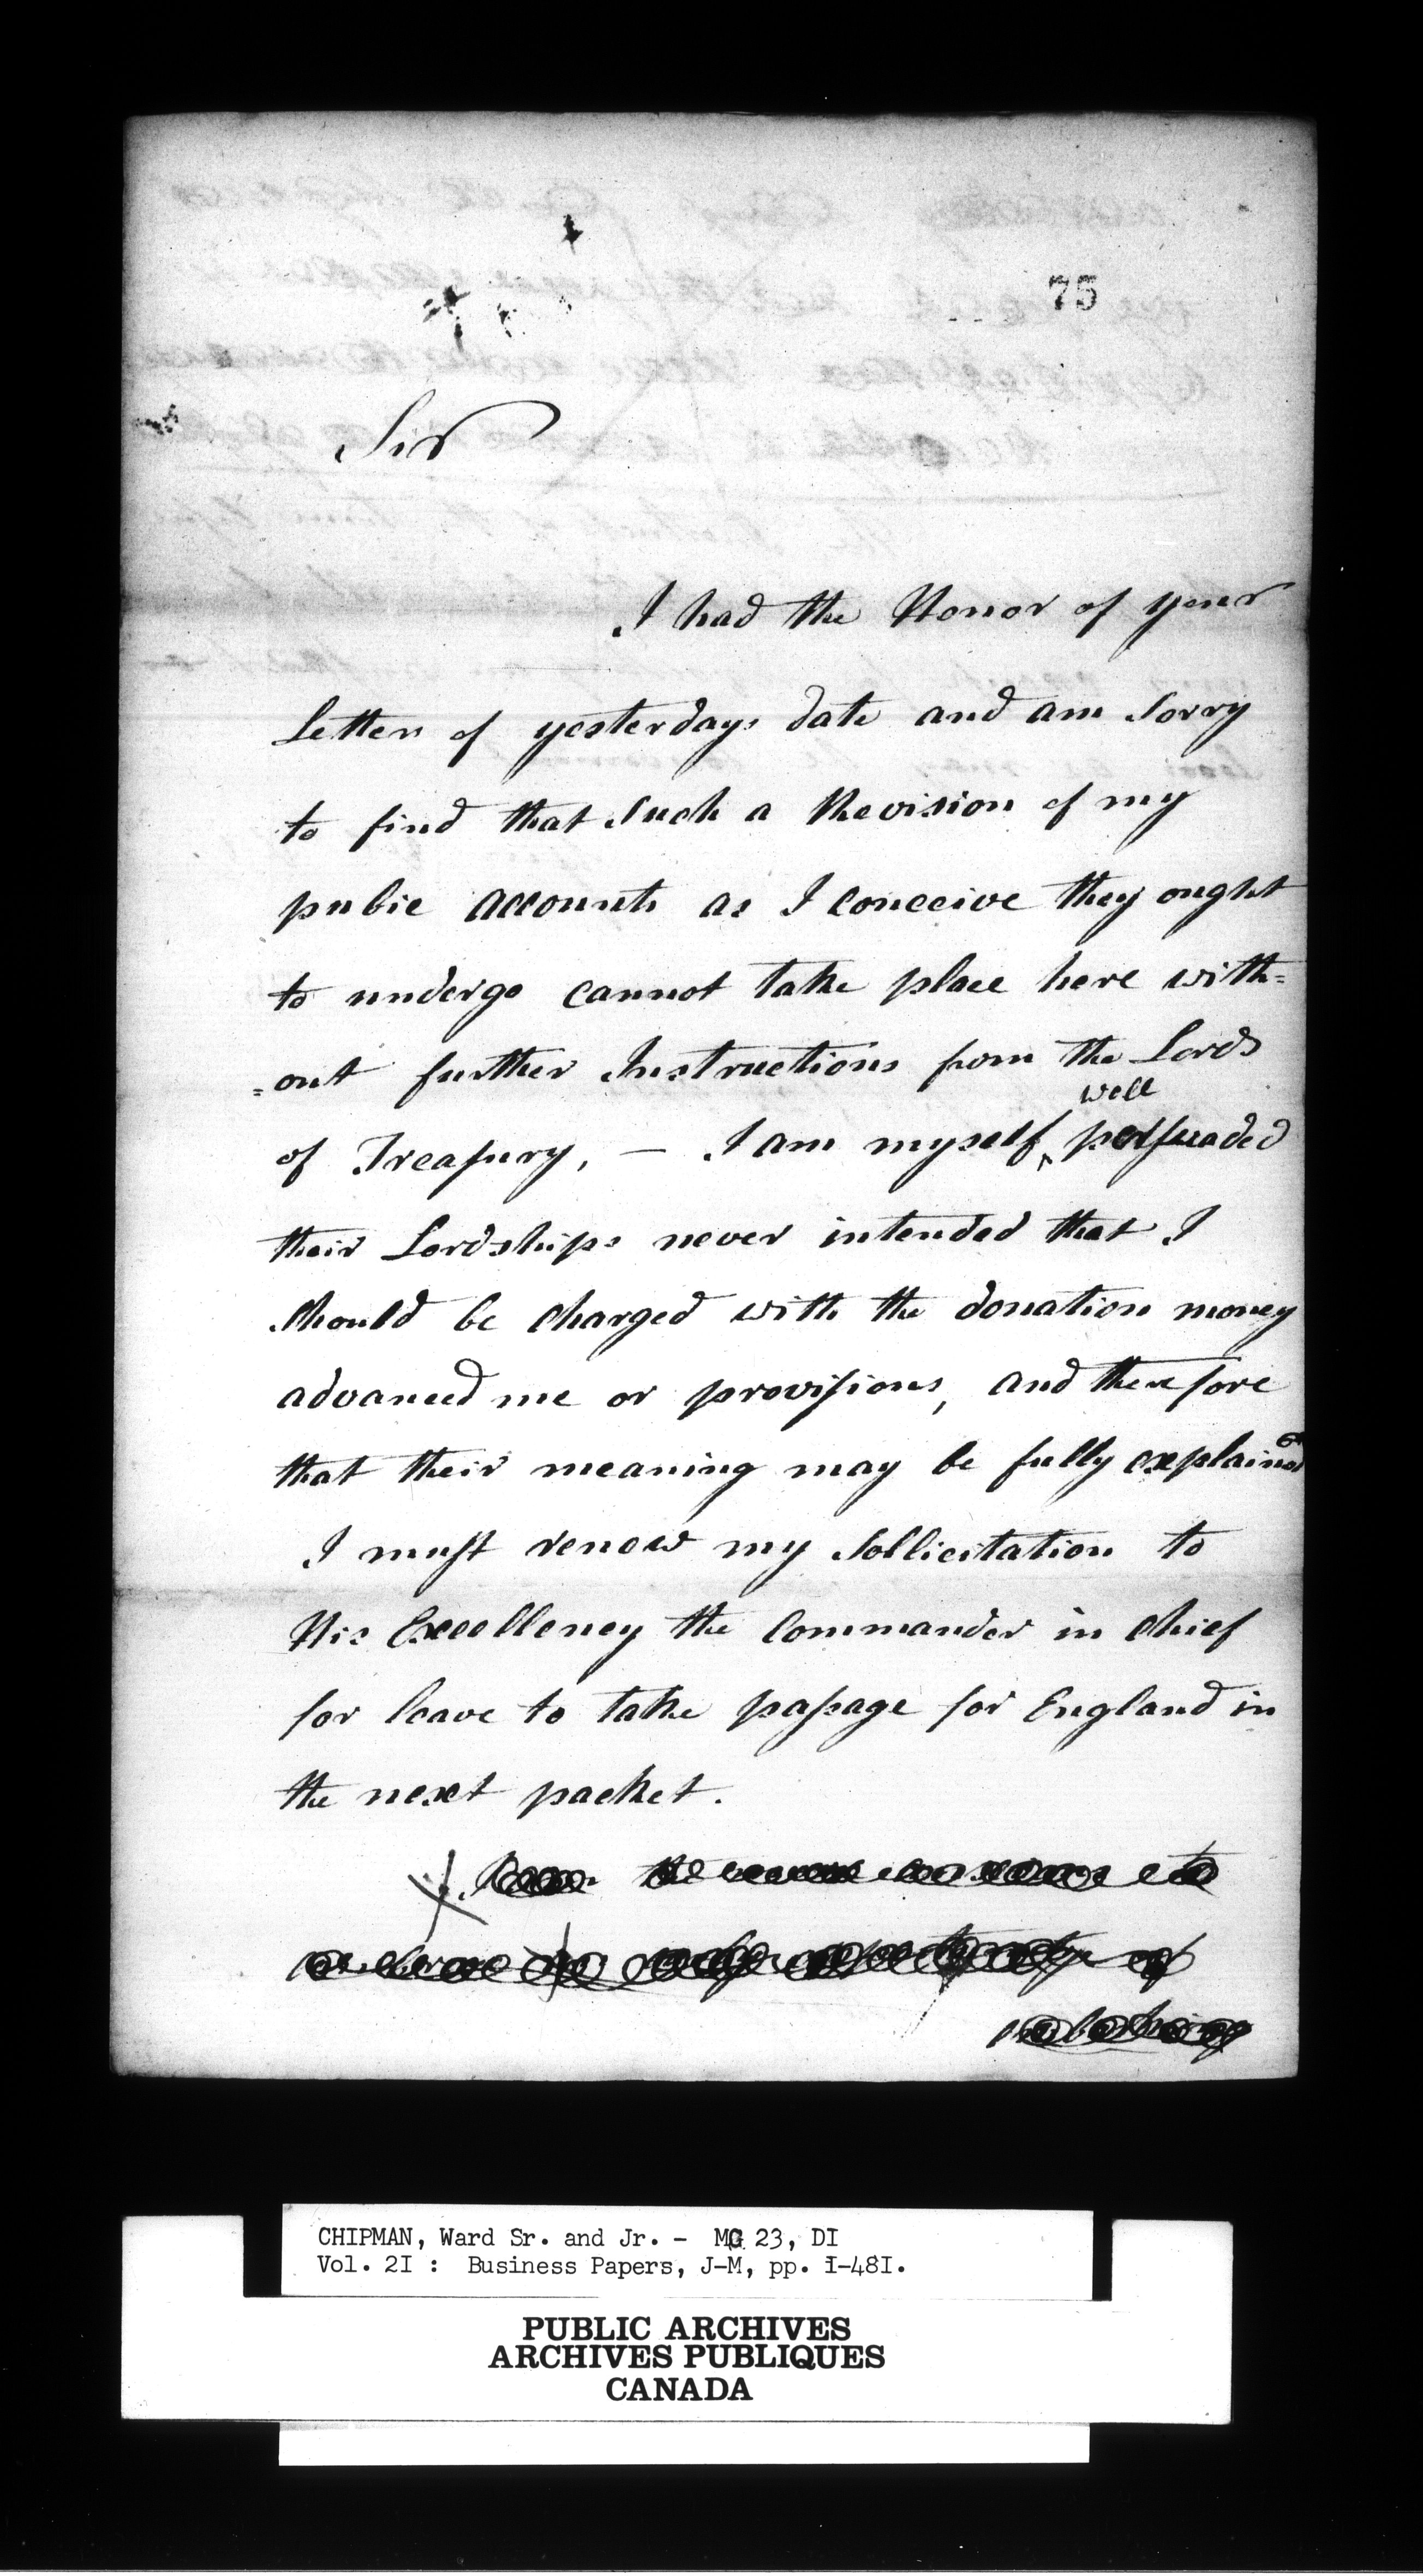 75
Sir
I had the Honor of your
Letter of yesterdays date and am Sorry
to find that Such a Revision of my
pubic accounts as I conceive they ought
to undergo cannot take place here with=
=out further Instructions from the Lords
well
of Treasury, — I am myself ‸ persuaded
their Lordships never intended that I
Should be Charged with the donation money
advanced me or provisions, and therefore
that their meaning may be fully explained
I must renew my Sollicitation to
His Excellency the Commander in Chief
for leave to take passage for England in
the next packet.
CHIPMAN, Ward Sr. and Jr. - MG 23, DI
Vol. 2I : Business Papers, J-M, pp. I-48I.
PUBLIC ARCHIVES
ARCHIVES PUBLIQUES
CANADA